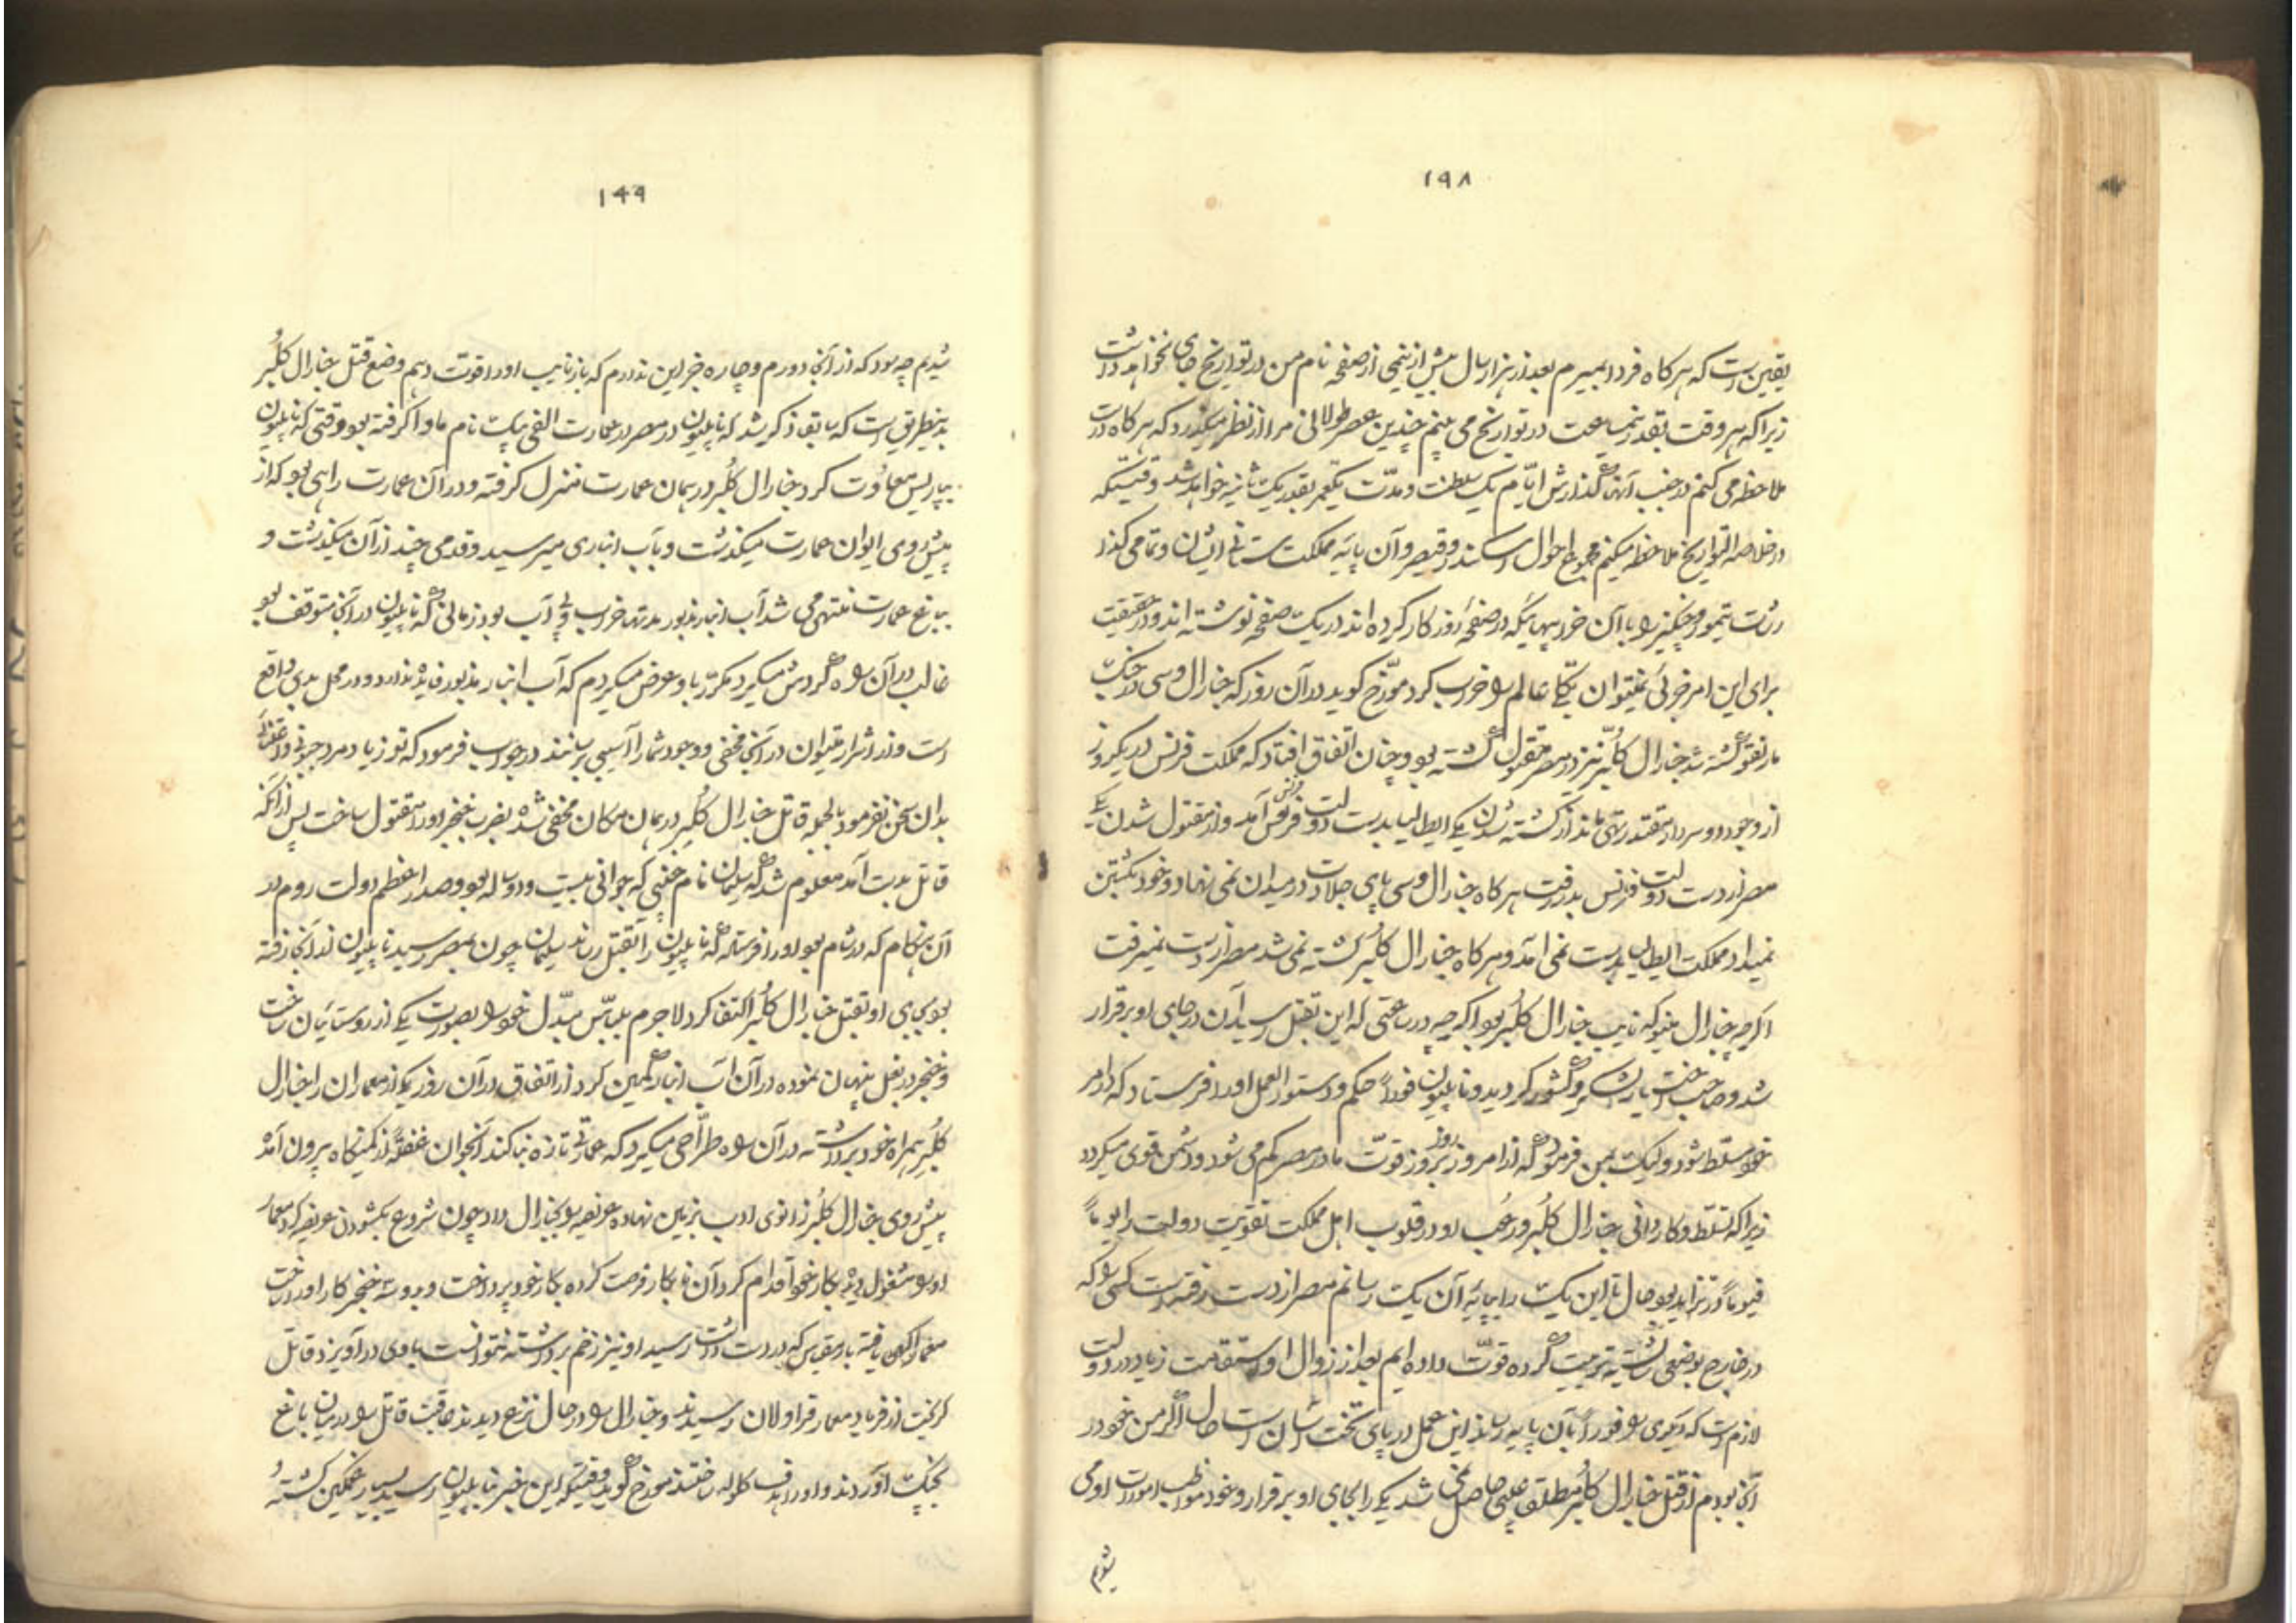 ۱۹۸
یقین است که هرکاه فردا بمیرم بعد از هزار سال بیش از نیمی از صفحه نام من در تواریخ جای نخواهد داشت
زیرا که هر وقت بقدر نیمساعت در تواریخ می بینم چندین عصر طولانی مرا از نظر میکذرد که هرکاه درست
ملاحظه می کنم در جنب آنها گذارش ایام یک سلطنت و مدت یکعمر بقدر یکثانیه خواهد شد وقتیکه
در خلاصه التواریخ ملاحظه میکنم مجموع احوال اسکندر و قیصر و آن پایه مملکت ستانی ایشان و تمامی کذار
شات تیمور و چنکیز را با آن خرابیهائیکه در صفحه روزکار کرده اند در یک صفحه نوشته اند و در حقیقت
برای این امر جزئی نمیتوان یکجا عالم را خراب کرد مورخ کوید در آن روز که جنارال دسی در جنک
مارنقو کشته شد جنارال کلبر نیز در مصر مقتول کشته بود و چنان اتفاق افتاد که مملکت فرنس در یکروز
از وجود دو سردار مقتدر تهی ماند از کشته شدن یکی ایطالیا بدست دولت فرنس آمد و از مقتول شدن یکی
مصر از دست دولت فرنس بدر رفت هرکاه جنارال دسی پای جلادت در میدان نمی نهاد و خود بکشتن
نمیداد مملکت ایطالیا بدست نمی آمد و هرکاه جنارال کلبر کشته نمی شد مصر از دست نمیرفت
اکرچه جنارال منو که نایب جنارال کلبر بود اکرچه در ساعتی که این بقتل رسید آن در جای او برقرار
شد و صاحب اختیار لشکر و کشور کردید و نابلیون فوراً حکم و دستور العمل او را فرستاد که در امر
خود مسلط شود ولیکن بمن فرمود که از امروز روز بروز قوت ما در مصر کم می شود و دشمن قوی میکردد
زیرا که تسلط و کاردانی جنارال کلبر و رعب او در قلوب اهل مملکت تقویت دولت را یوماً
فیوماً در تزاید بود حال تا این یک را بپایه آن یک رسانم مصر از دست رفته است کسی را که
در خارج بوضعی شایسته تربیت کرده قوت داده ایم بعد از زوال او استقامت زیاد در دولت
لازم است که دیکری را فوراً بآن پایه رساند این عمل در پای تخت آسان است حال اکر من خود در
آنجا بودم از قتل جنارال کلبر مطلق عیبی حاصل نمی شد یکی را بجای او برقرار و خود مواظب امورات او می
شدم
۱۹۹
شدیم چه سود که از آنجا دورم و چاره جز این ندارم که باز نایب او را قوت دهم وضع قتل جنارال کلبر
بدینطریق است که سابقا ذکر شد که نابلیون در مصر در عمارت الفی بیک نام ماوا کرفته بود وقتی که نابلیون
بپاریس معاودت کرد جنارال کلبر در همان عمارت منزل کرفته و در آن عمارت راهی بود که از
پیش روی ایوان عمارت میکذشت و بآب انباری میرسید و قدمی چند از آن میکذشت و
بباغ عمارت منتهی می شد آب انبار مذبور مدتها خراب و بی آب بود زمانی که نابلیون در آنجا متوقف بود
غالب در آن راه کردش میکرد مکرر باو عرض میکردم که آب انبار مذبور فایده ندارد و در محل بدی واقع
است دزد و اشرار میتوان در آنجا مخفی و وجود شما را آسیبی رسانند در جواب فرمود که تو زیاد مرد جبونی و اعتنائی
بدان سخن نفرمود بالجمله قاتل جنارال کلبر در همان مکان مخفی شده بضرب خنجر او را مقتول ساخت پس از آنکه
قاتل بدست آمد معلوم شد که سلیمان نام حلبی که جوانی بیست و دو ساله بود و صدر اعظم دولت روم در
آن هنکام که در شام بود او را فرستاده که نابلیون را بقتل رساند سلیمان چون بمصر رسید نابلیون از آنجا رفته
بود بجای او بقتل جنارال کلبر اکتفا کرد لاجرم بلباس مبدل خود را بصورت یکی از روستائیان ساخت
و خنجر در بغل پنهان نموده در آن آب انبار کمین کرد از اتفاق در آن روز یکی از معماران را جنارال
کلبر همراه خود برداشته در آن راه طراحی میکرد که عمارتی تازه بنا کند آنجوان غفلةً از کمینکاه بیرون آمد
پیش روی جنارال کلبر زانوی ادب بزمین نهاده عریضه را بجنارال داد چون شروع بکشودن عریضه کرد معمار
او را مشغول دیده بکار خود اقدام کرد آن نابکار فرصت کرده بکار خود پرداخت و بدو سه خنجر کار او را ساخت
معمار آکهی یافته با مقیاسی که در دست داشت رسید او نیز زخم برداشته نتوانست با وی در آویزد قاتل
کریخت از فریاد معمار قراولان رسیدند و جنارال را در حال نزع دیدند عاقبت قاتل را در میان باغ
بچنک آوردند و او را هدف کلوله ساختند مورخ کوید وقتیکه این خبر بنابلیون رسید بسیار غمکین کشته